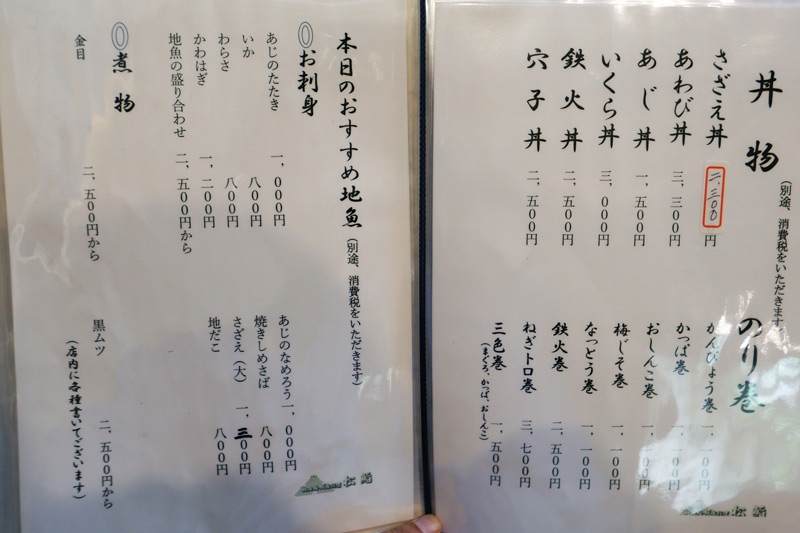 丼物
(別途、消費税をいただきます)
さざえ丼 二、三〇〇円
あわび丼 三、三〇〇円
あじ丼 一、五〇〇円
いくら丼 三、〇〇〇円
鉄火丼 二、五〇〇円
穴子丼 二、五〇〇円
のり巻
かんぴょう巻 一、一〇〇円
かっぱ巻 一、一〇〇円
おしんこ巻 一、一〇〇円
梅じそ巻 一、一〇〇円
なっとう巻 一、一〇〇円
鉄火巻 二、五〇〇円
ねぎトロ巻 三、七〇〇円
三色巻 一、五〇〇円
(まぐろ、かっぱ、おしんこ)
松鮨
本日のおすすめ地魚(別途、消費税をいただきます)
◎お刺身
あじのたたき 一、〇〇〇円
いか 八〇〇円
わらさ 八〇〇円
かわはぎ 一、二〇〇円
地魚の盛り合わせ 二、五〇〇円から
あじのなめろう 一、〇〇〇円
焼きしめさば 八〇〇円
さざえ(大) 一、三〇〇円
地だこ 八〇〇円
◎煮物
金目 二、五〇〇円から
黒ムツ 二、五〇〇円から
(店内に各種書いてございます)
松鮨